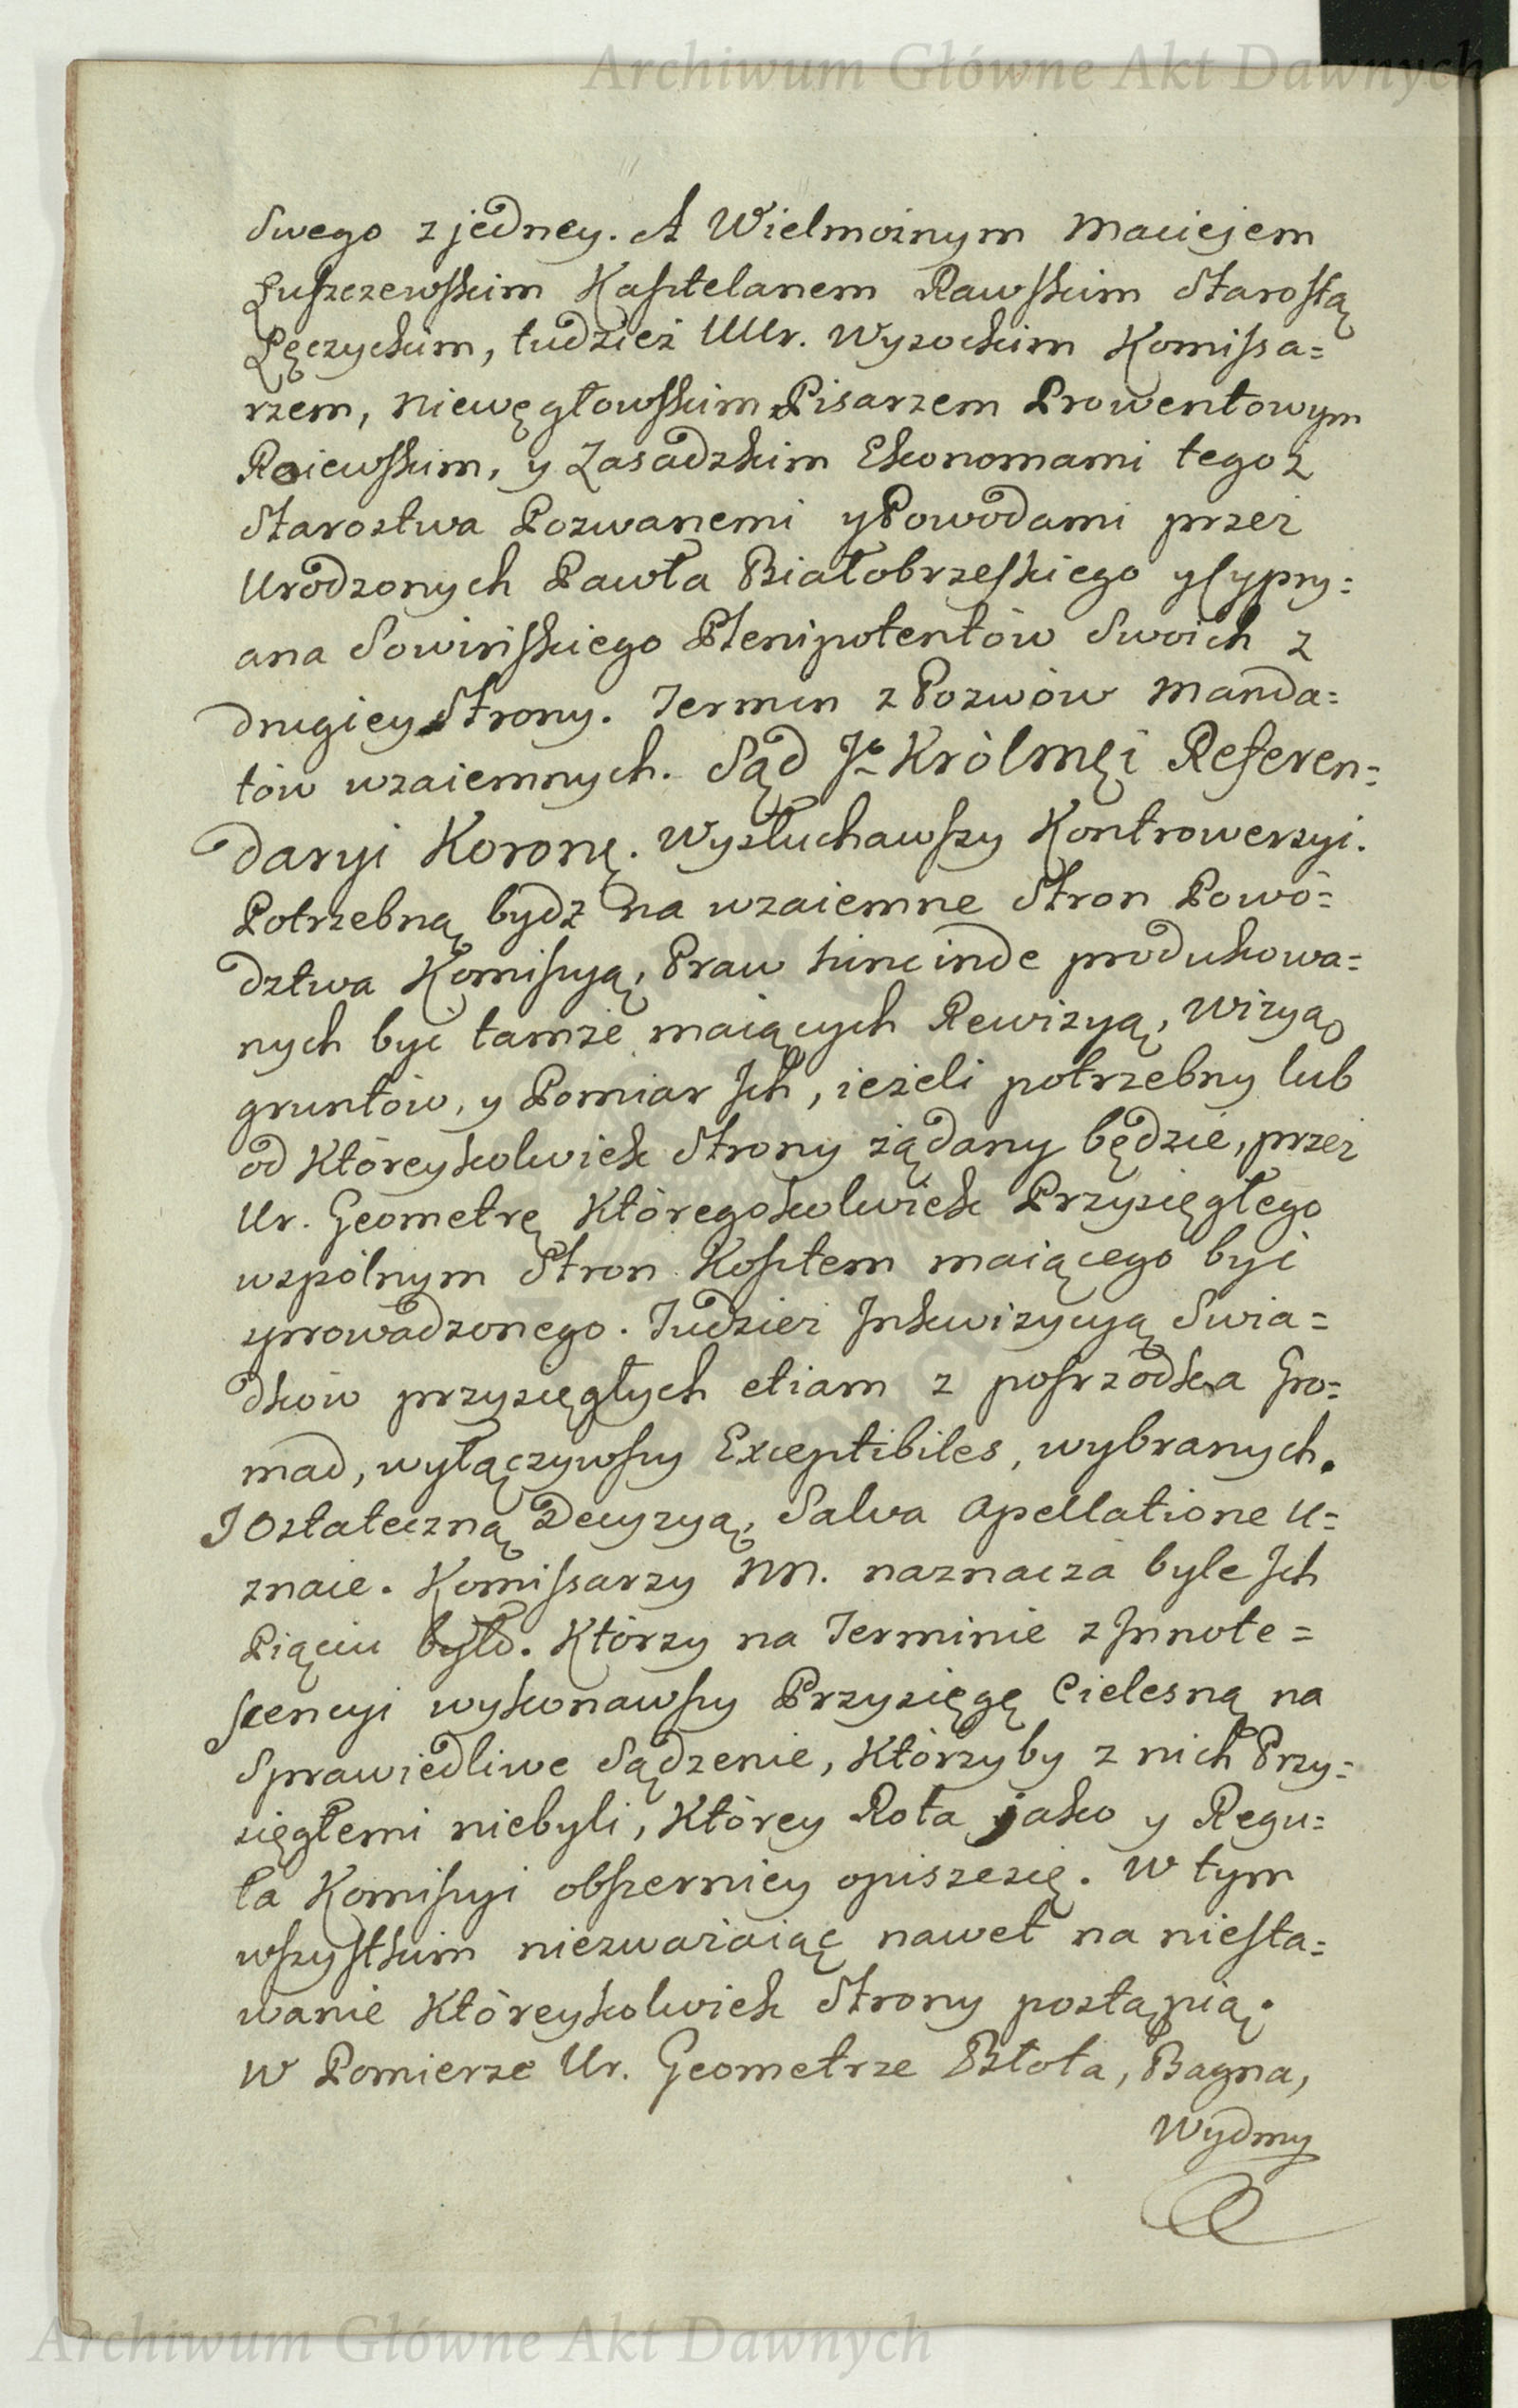 Archiwum Główne Akt Dawnych
Swego z jedney. A Wielmożnym Maciejem
Łuszczewskim Kasztelanem Rawskim Starostą
Łęczyckim, tudzież UUr. Wysockim Komissa=
rzem, Niewęgłowskim Pisarzem Prowentowym
Raiewskim, y Zasadzkim Ekonomami tegoż
Starostwa Pozwanemi y Powodami przez
Urodzonych Pawła Białobrzeskiego y Cypry=
ana Sowińskiego Plenipotentów Swoich z
drugiey Strony. Termin z Pozwów Manda=
tów wzaiemnych. Sąd Jo Królmęi Referen=
daryi Koronę. Wysłuchawszy Kontrowersyi.
Potrzebną bydz na wzaiemne Stron Powó=
dztwa Komissyą, Praw hincinde produkowa=
nych być tamże maiących Rewizyą, Wizyą
gruntów, y Pomiar Ich, ieżeli potrzebny lub
od któreykolwiek Strony żądany będzie, przez
Ur. Geometrę któregokolwiek Przysięgłego
wspólnym Stron Kosztem maiącego być
zprowadzonego. Tudzież Inkwizycyą Swia=
dków przysięgłych etiam z poszrzódka Gro=
mad, wyłączywszy Exceptibiles, wybranych.
I Ostateczną Decyzyą, Salva Apellatione u=
znaie. Komissarzy NN. naznacza byle Ich
Piąciu było. Którzy na Terminie z Innote=
scencyi wykonawszy Przysięgę Cielesną na
Sprawiedliwe Sądzenie, którzyby z nich Przy=
sięgłemi niebyli, którey Rota jako y Regu=
ła Komissyi obszerniey opiszesię. W tym
wszystkim niezważaiąc nawet na niesta=
wanie któreykolwiek Strony postąpią.
W Pomierze Ur. Geometrze Błota, Bagna,
Wydmy
Archiwum Główne Akt Dawnych